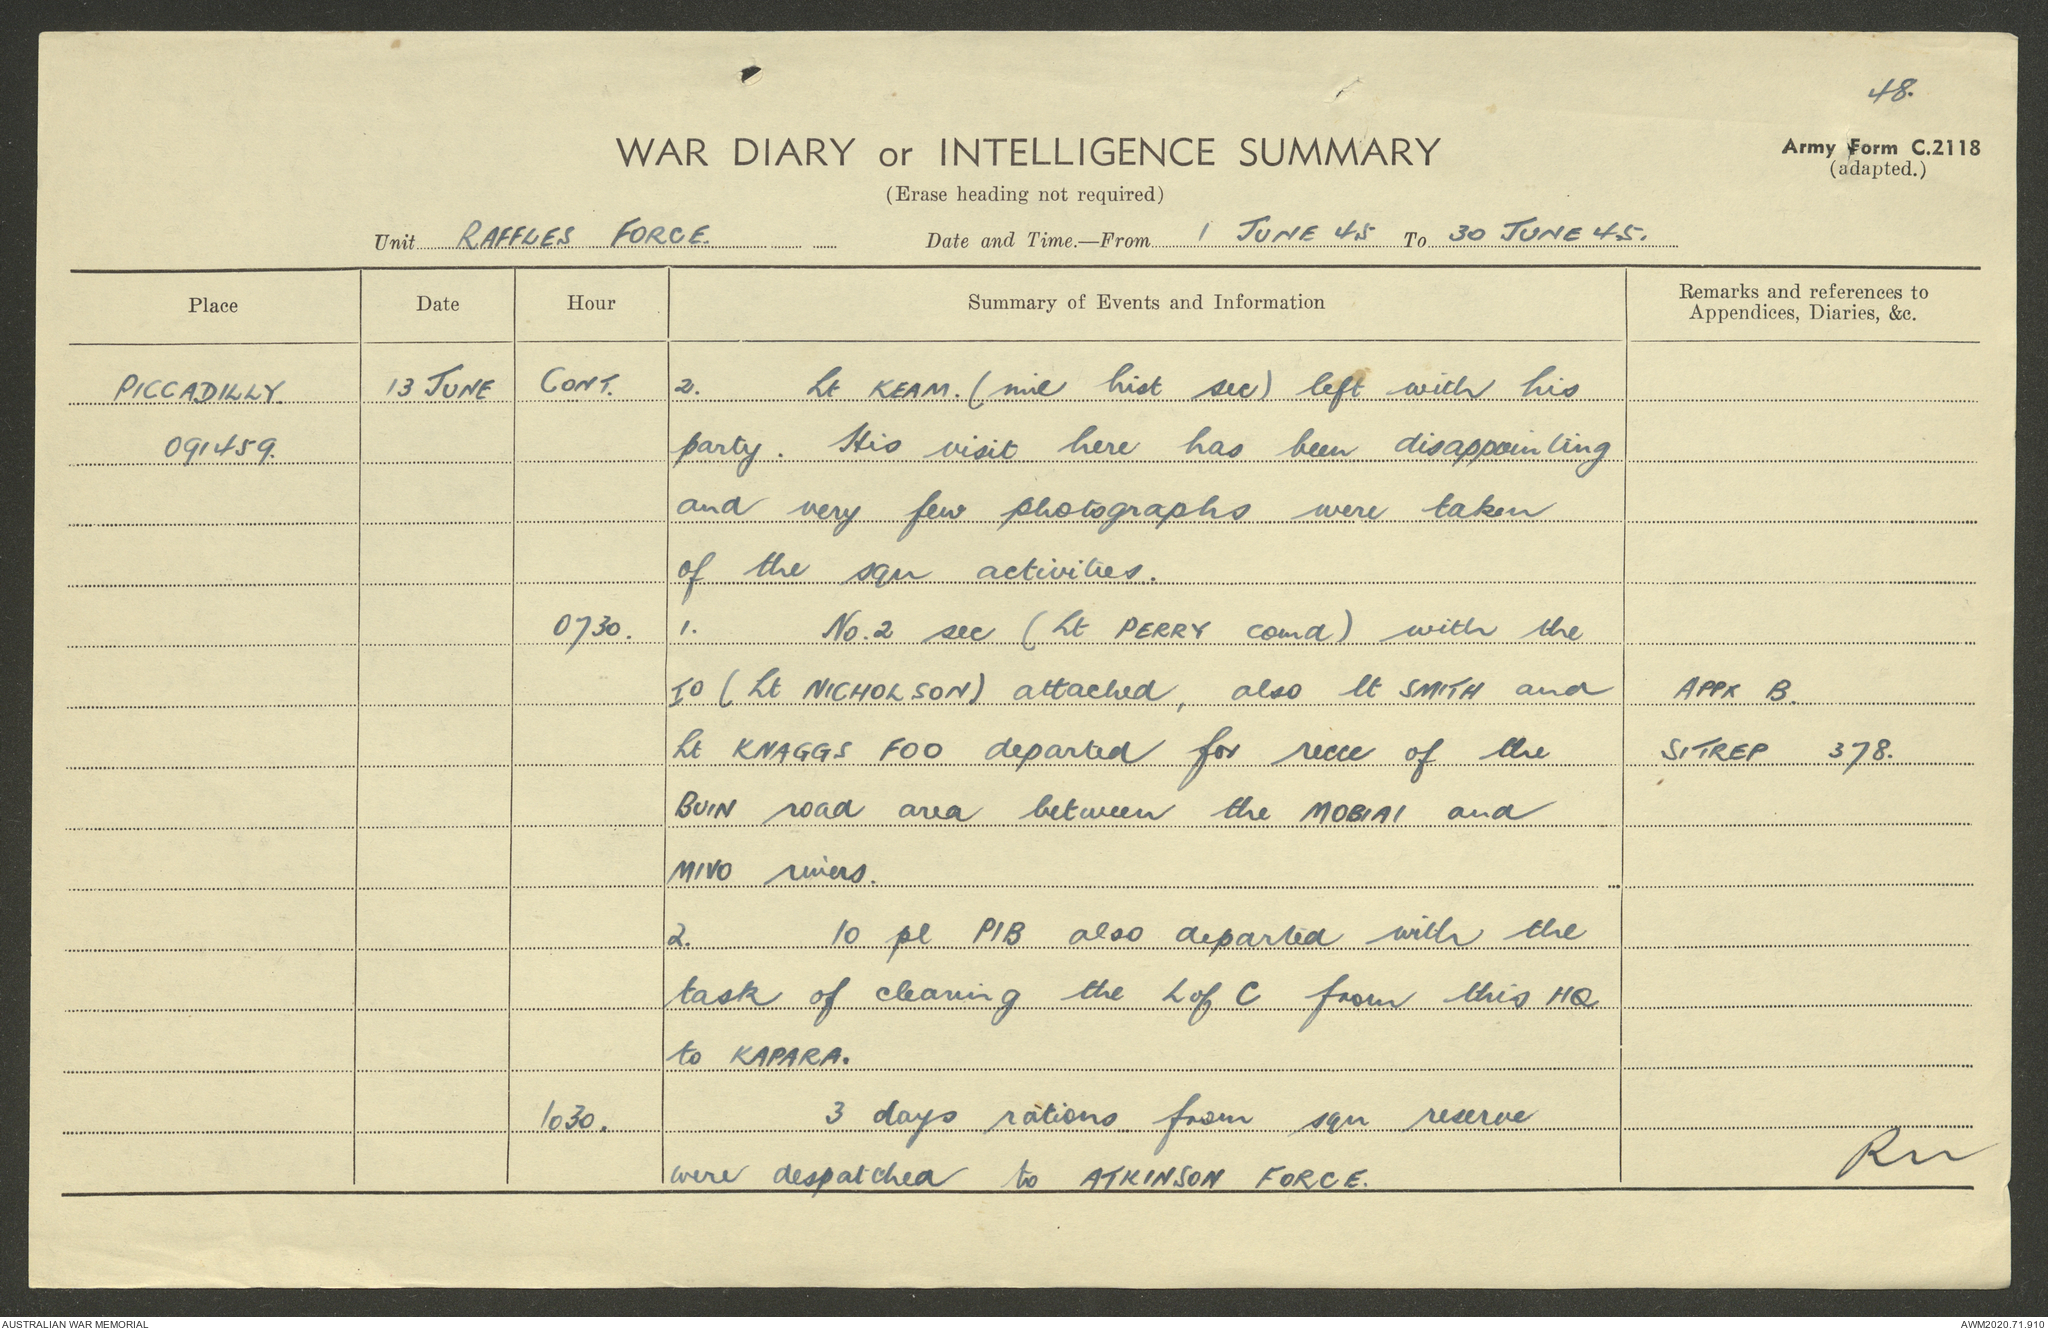 48.
WAR DIARY or INTELLIGENCE SUMMARY
Army Form C.2118
(adapted.)
(Erase heading not required)
Unit RAFFLES FORCE. Date and Time.—From 1 JUNE 45 To 30 JUNE 45.
Place Date Hour Summary of Events and Information Remarks and references to
Appendices, Diaries, &c.
PICCADILLY. 13 JUNE CONT. 2. Lt KEAM. (mil hist sec) left with his
091459. party. His visit here has been disappointing
and very few photographs were taken
of the sqn activities.
0730. 1. No. 2 sec (Lt PERRY comd) with the
IO (Lt NICHOLSON) attached, also lt SMITH and APPX B.
Lt KNAGGS FOO departed for recce of the SITREP 378.
BUIN road area between the MOBIAI and
MIVO rivers.
2. 10 pl PIB also departed with the
task of clearing the L of C from this HQ
to KAPARA.
1030. 3 days rations from sqn reserve
were despatched to ATKINSON FORCE.
AUSTRALIAN WAR MEMORIAL
AWM2020.71.910